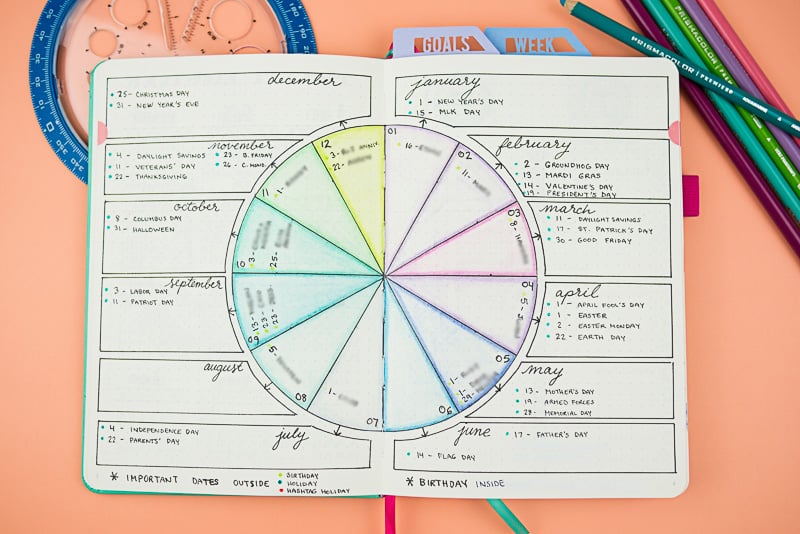 GOALS
WEEK
PRISMACOLOR PREMIER
PRISMACOLOR
december
25- CHRISTMAS DAY
31 - NEW YEAR'S EVE
january
1 - NEW YEAR'S DAY
15 - MLK DAY
november
4 - DAYLIGHT SAVINGS
11 - VETERANS' DAY
22 - THANKSGIVING
23 - B. FRIDAY
26 - C. MOND.
february
2 - GROUNDHOG DAY
13 - MARDI GRAS
14 - VALENTINE'S DAY
19 - PRESIDENT'S DAY
october
8 - COLUMBUS DAY
31 - HALLOWEEN
march
11 - DAYLIGHT SAVINGS
17 - ST. PATRICK'S DAY
30 - GOOD FRIDAY
september
3 - LABOR DAY
11 - PATRIOT DAY
april
1 - APRIL FOOL'S DAY
1 - EASTER
2 - EASTER MONDAY
22 - EARTH DAY
august
may
13 - MOTHER'S DAY
19 - ARMED FORCES
28 - MEMORIAL DAY
4 - INDEPENDENCE DAY
22 - PARENTS' DAY
july
june
17 - FATHER'S DAY
14 - FLAG DAY
12
3- ANNIV.
22-
01
16 -
02
11 -
03
8 -
04
5 -
05
1 -
1 -
29 -
06
07
1 -
08
5 -
09
13 -
23 -
23 -
10
3 -
25 -
11
1 -
* IMPORTANT DATES OUTSIDE
BIRTHDAY
HOLIDAY
HASHTAG HOLIDAY
* BIRTHDAY INSIDE